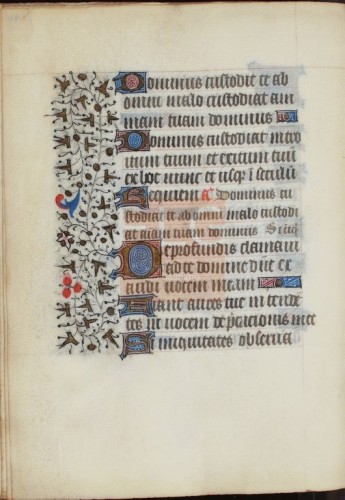 Dominus custodit te ab
omni malo custodiat ani
mam tuam dominus
Dominus custodiat intro
itum tuum et exitum tuũ
ex hoc nunc et usqȝ ĩ seculũ
Requiem A Dominus cu
stodit te ab omni malo custodi
at animam tuam dominus
De profundis clamaui
ad te domine dñe ex
audi uocem meam
Fiant aures tue intende
tes in uocem dep̃cacionis mee
Si iniquitates obserua